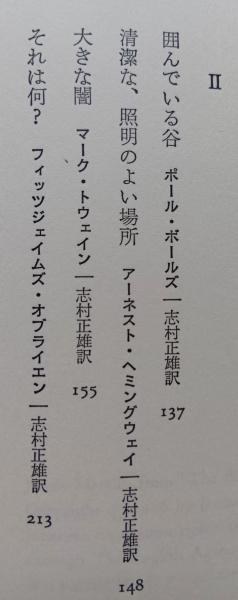 II
囲んでいる谷　ポール・ボールズ｜志村正雄訳　137
清潔な、照明のよい場所　アーネスト・ヘミングウェイ｜志村正雄訳　148
大きな闇　マーク・トウェイン｜志村正雄訳　155
それは何?　フィッツジェイムズ・オブライエン｜志村正雄訳　213